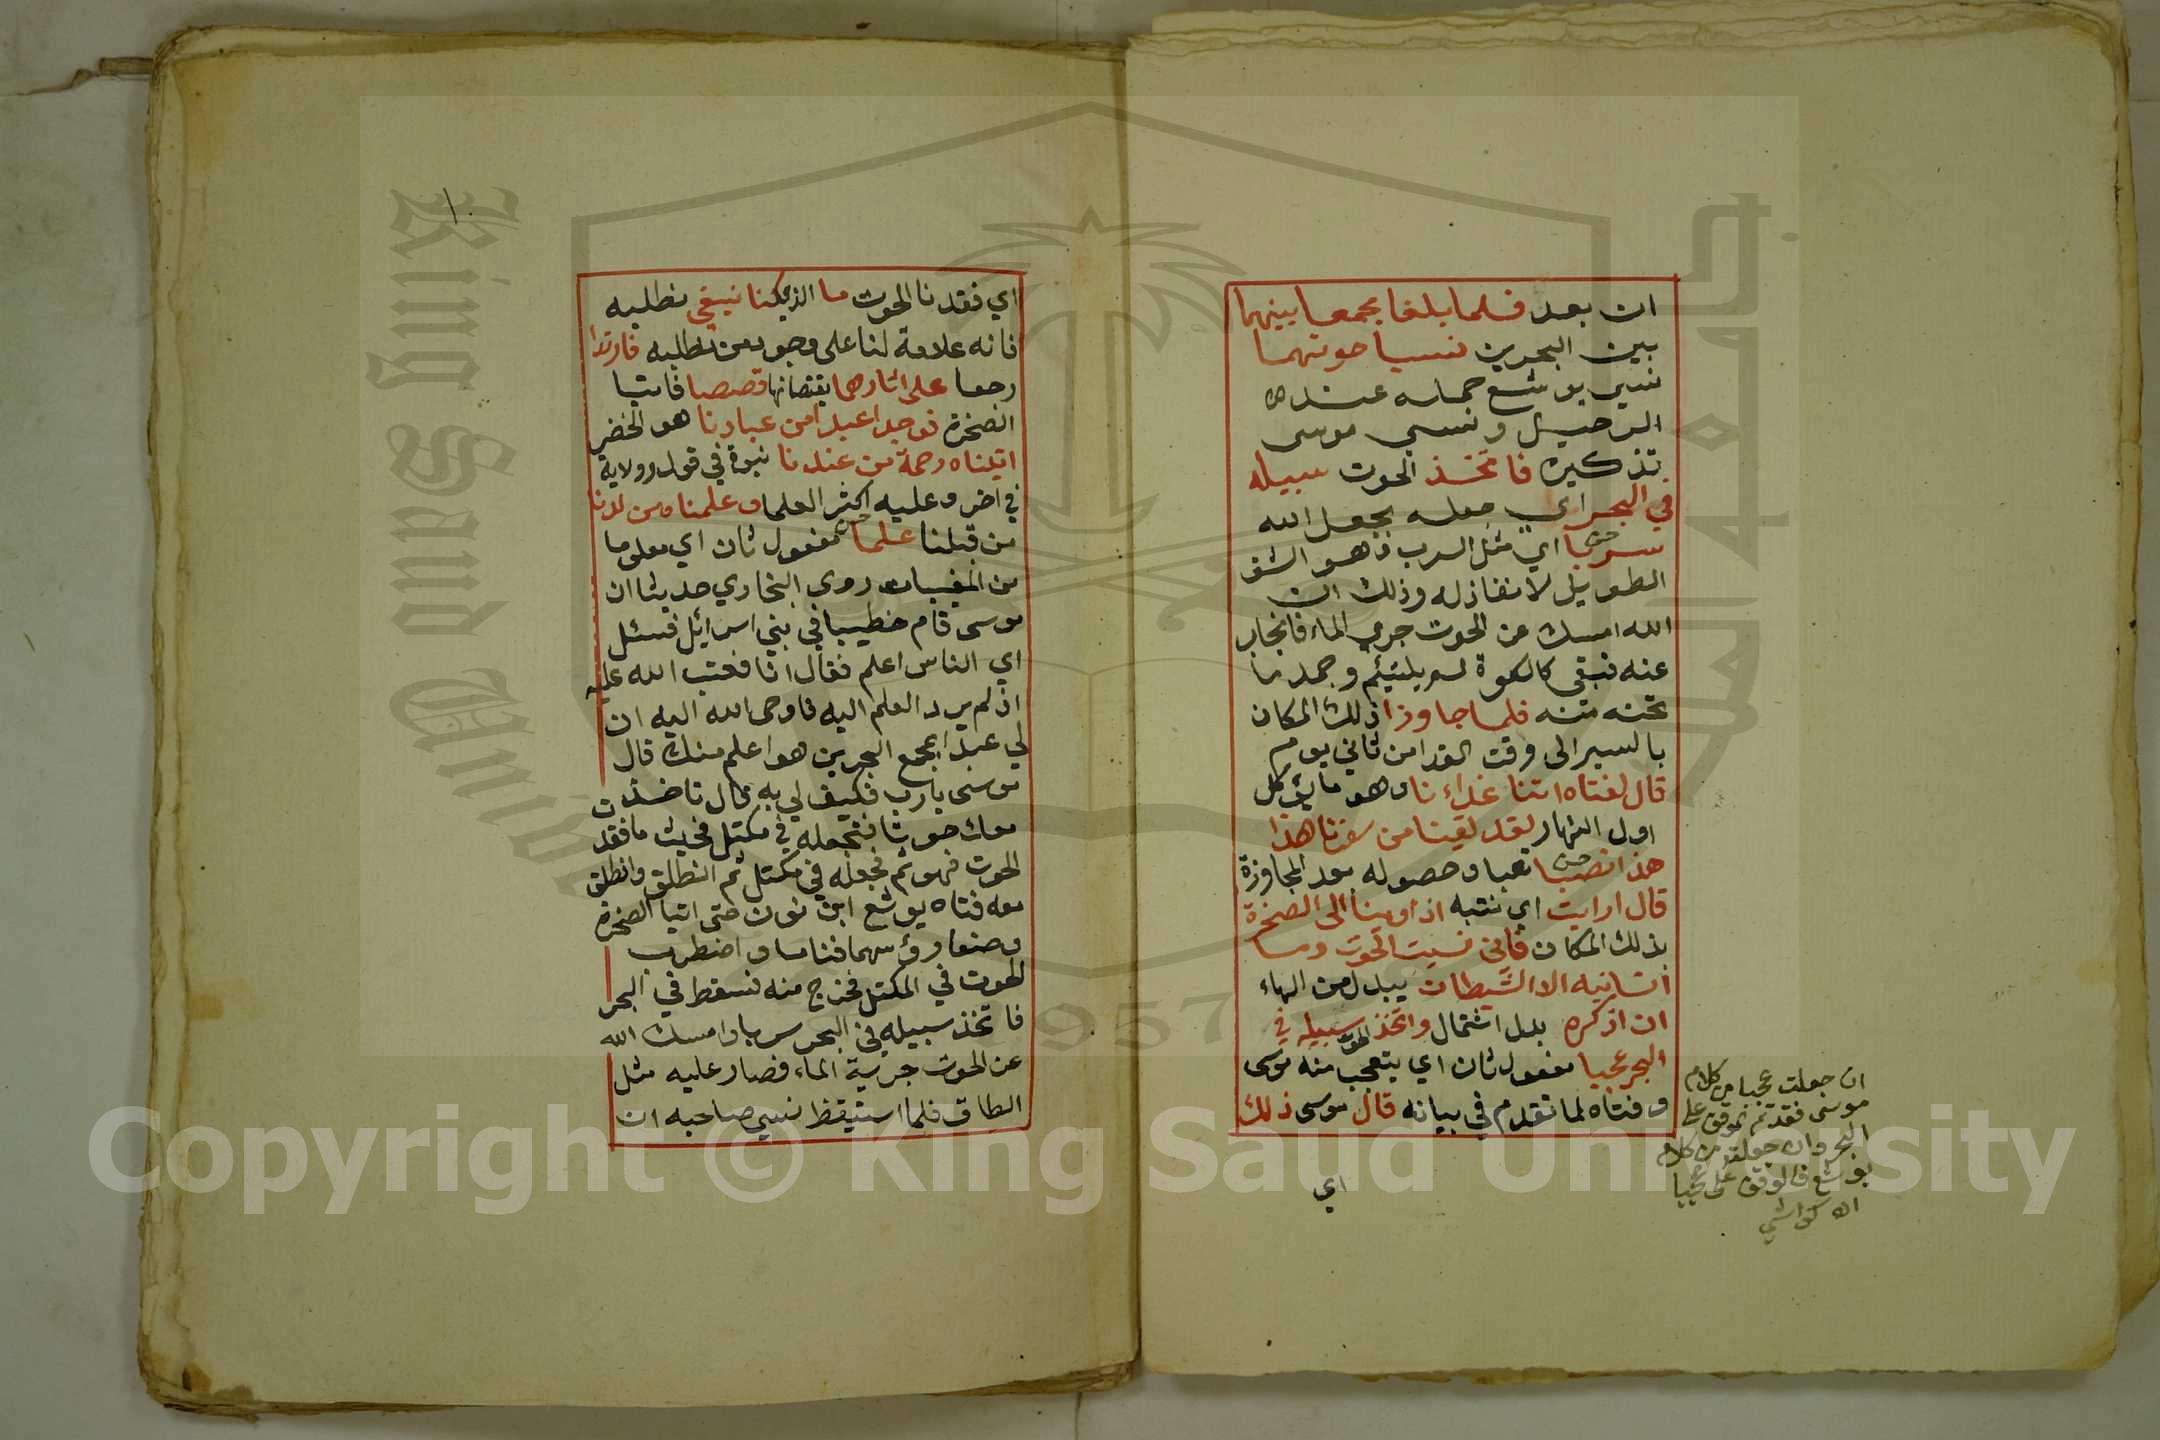 ان بعد فلما بلغا مجمع بينهما
بين البحرين نسيا حوتهما
نسي يوشع حمله عند
الرحيل ونسي موسى
تذكيره فاتخذ الحوت سبيله
في البحر اي جعله بجعل الله
سربا اي مثل السرب وهو الشق
الطويل لا نفاذ له وذلك ان
الله امسك عن الحوت جري الماء فانجاب
عنه فبقي كالكوة لم يلتئم وجمد ما
تحته منه فلما جاوزا ذلك المكان
بالسير الى وقت الغدا من ثاني يوم
قال لفتاه اتنا غداءنا وهو ما يوكل
اول النهار لقد لقينا من سفرنا هذا
هذا نصبا تعبا وحصوله بعد المجاوزة
قال ارايت اي تنبه اذ اوينا الى الصخرة
بذلك المكان فاني نسيت الحوت وما
انسانيه الا الشيطان يبدل من الهاء
ان اذكره بدل اشتمال واتخذ الحوت سبيله في
البحر عجبا مفعول ثان اي يتعجب منه موسى
وفتاه لما تقدم في بيانه قال موسى ذلك
اي
ان جعلت عجبا من كلام
موسى فقد تم الوقف على
البحر وان جعلته من كلام
يوشع فالوقف على عجبا
اه كواشي
١٠
اي فقدنا الحوت ما الذي كنا نبغي نطلبه
فانه علامة لنا على وجود من نطلبه فارتدا
رجعا على اثارهما يقصانها قصصا فاتيا
الصخرة فوجدا عبدا من عبادنا هو الخضر
اتيناه رحمة من عندنا نبوة في قول وولاية
في اخر وعليه اكثر العلما وعلمناه من لدنا
من قبلنا علما مفعول ثان اي معلوما
من المغيبات روى البخاري حديثا ان
موسى قام خطيبا في بني اسرائل فسئل
اي الناس اعلم فقال انا فعتب الله عليه
اذ لم يرد العلم اليه فاوحى الله اليه ان
لي عبدا بمجمع البحرين هو اعلم منك قال
موسى يا رب فكيف لي به قال تاخذ
معك حوتا فتجعله في مكتل فحيث ما فقدت
الحوت فهو ثم فجعله في مكتل ثم انطلق وانطلق
معه فتاه يوشع ابن نون حتى اتيا الصخرة
وضعا رؤسهما فناما واضطرب
الحوت في المكتل فخرج منه فسقط في البحر
فاتخذ سبيله في البحر سربا وامسك الله
عن الحوت جرية الماء فصار عليه مثل
الطاق فلما استيقظ نسي صاحبه ان
Copyright © King Saud University
King Saud University
جامعة الملك سعود
1957